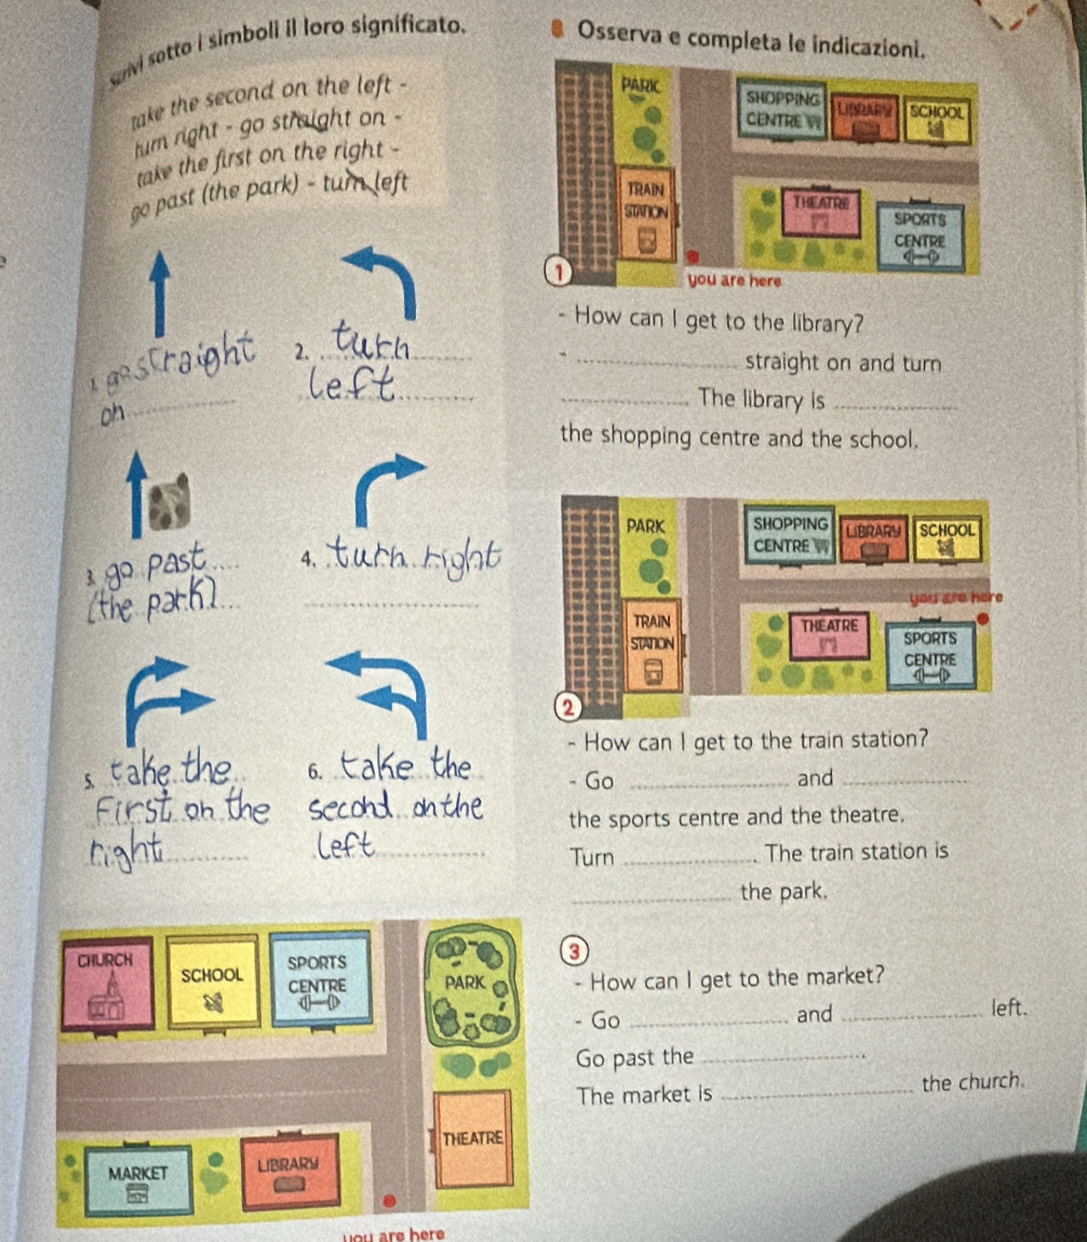 scrivi sotto i simboli il loro significato.
take the second on the left -
turn right - go straight on -
take the first on the right -
go past (the park) - turn left
1. go straight
on
2. turn
left
3. go past
(the park)
4. turn right
5. take the
First on the
right
6. take the
second on the
left
CHURCH
SCHOOL
SPORTS
CENTRE
PARK
MARKET
LIBRARY
THEATRE
you are here
8 Osserva e completa le indicazioni.
PARK
SHOPPING
CENTRE
LIBRARY
SCHOOL
TRAIN
STATION
THEATRE
SPORTS
CENTRE
1
you are here
- How can I get to the library?
- ______ straight on and turn
______. The library is ______
the shopping centre and the school.
PARK
SHOPPING
CENTRE
LIBRARY
SCHOOL
you are here
TRAIN
STATION
THEATRE
SPORTS
CENTRE
2
- How can I get to the train station?
- Go ______ and ______
the sports centre and the theatre.
Turn ______. The train station is
______ the park.
3
- How can I get to the market?
- Go ______ and ______ left.
Go past the ______.
The market is ______ the church.